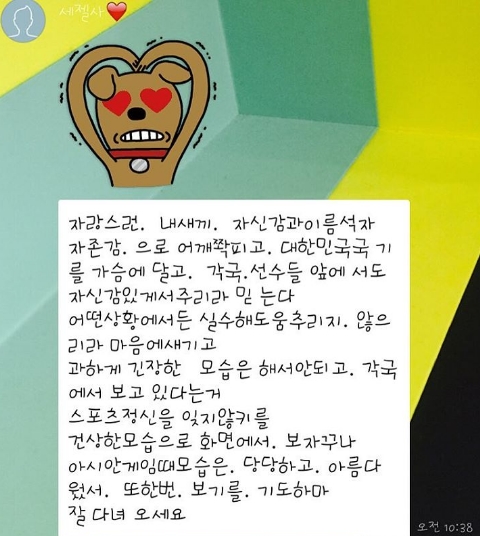 세젤사❤
자랑스런. 내새끼. 자신감과이름석자
자존감. 으로 어깨쫙피고. 대한민국국 기
를 가슴에 달고. 각국.선수들 앞에 서도
자신감있게서주리라 믿 는다
어떤상황에서든 실수해도움추리지. 않으
리라 마음에새기고
과하게 긴장한 모습은 해서안되고. 각국
에서 보고 있다는거
스포츠정신을 잊지않키를
건상한모습으로 화면에서. 보자꾸나
아시안게임때모습은. 당당하고. 아름다
웠서. 또한번. 보기를. 기도하마
잘 다녀 오세요
오전 10:38